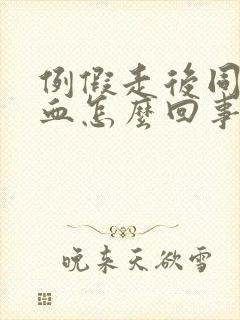 例假走後同
血怎麼回事
晚来天欲雪